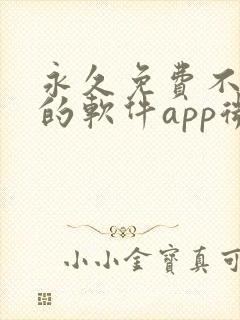 永久免费不
的軟件app
小小金寶真可